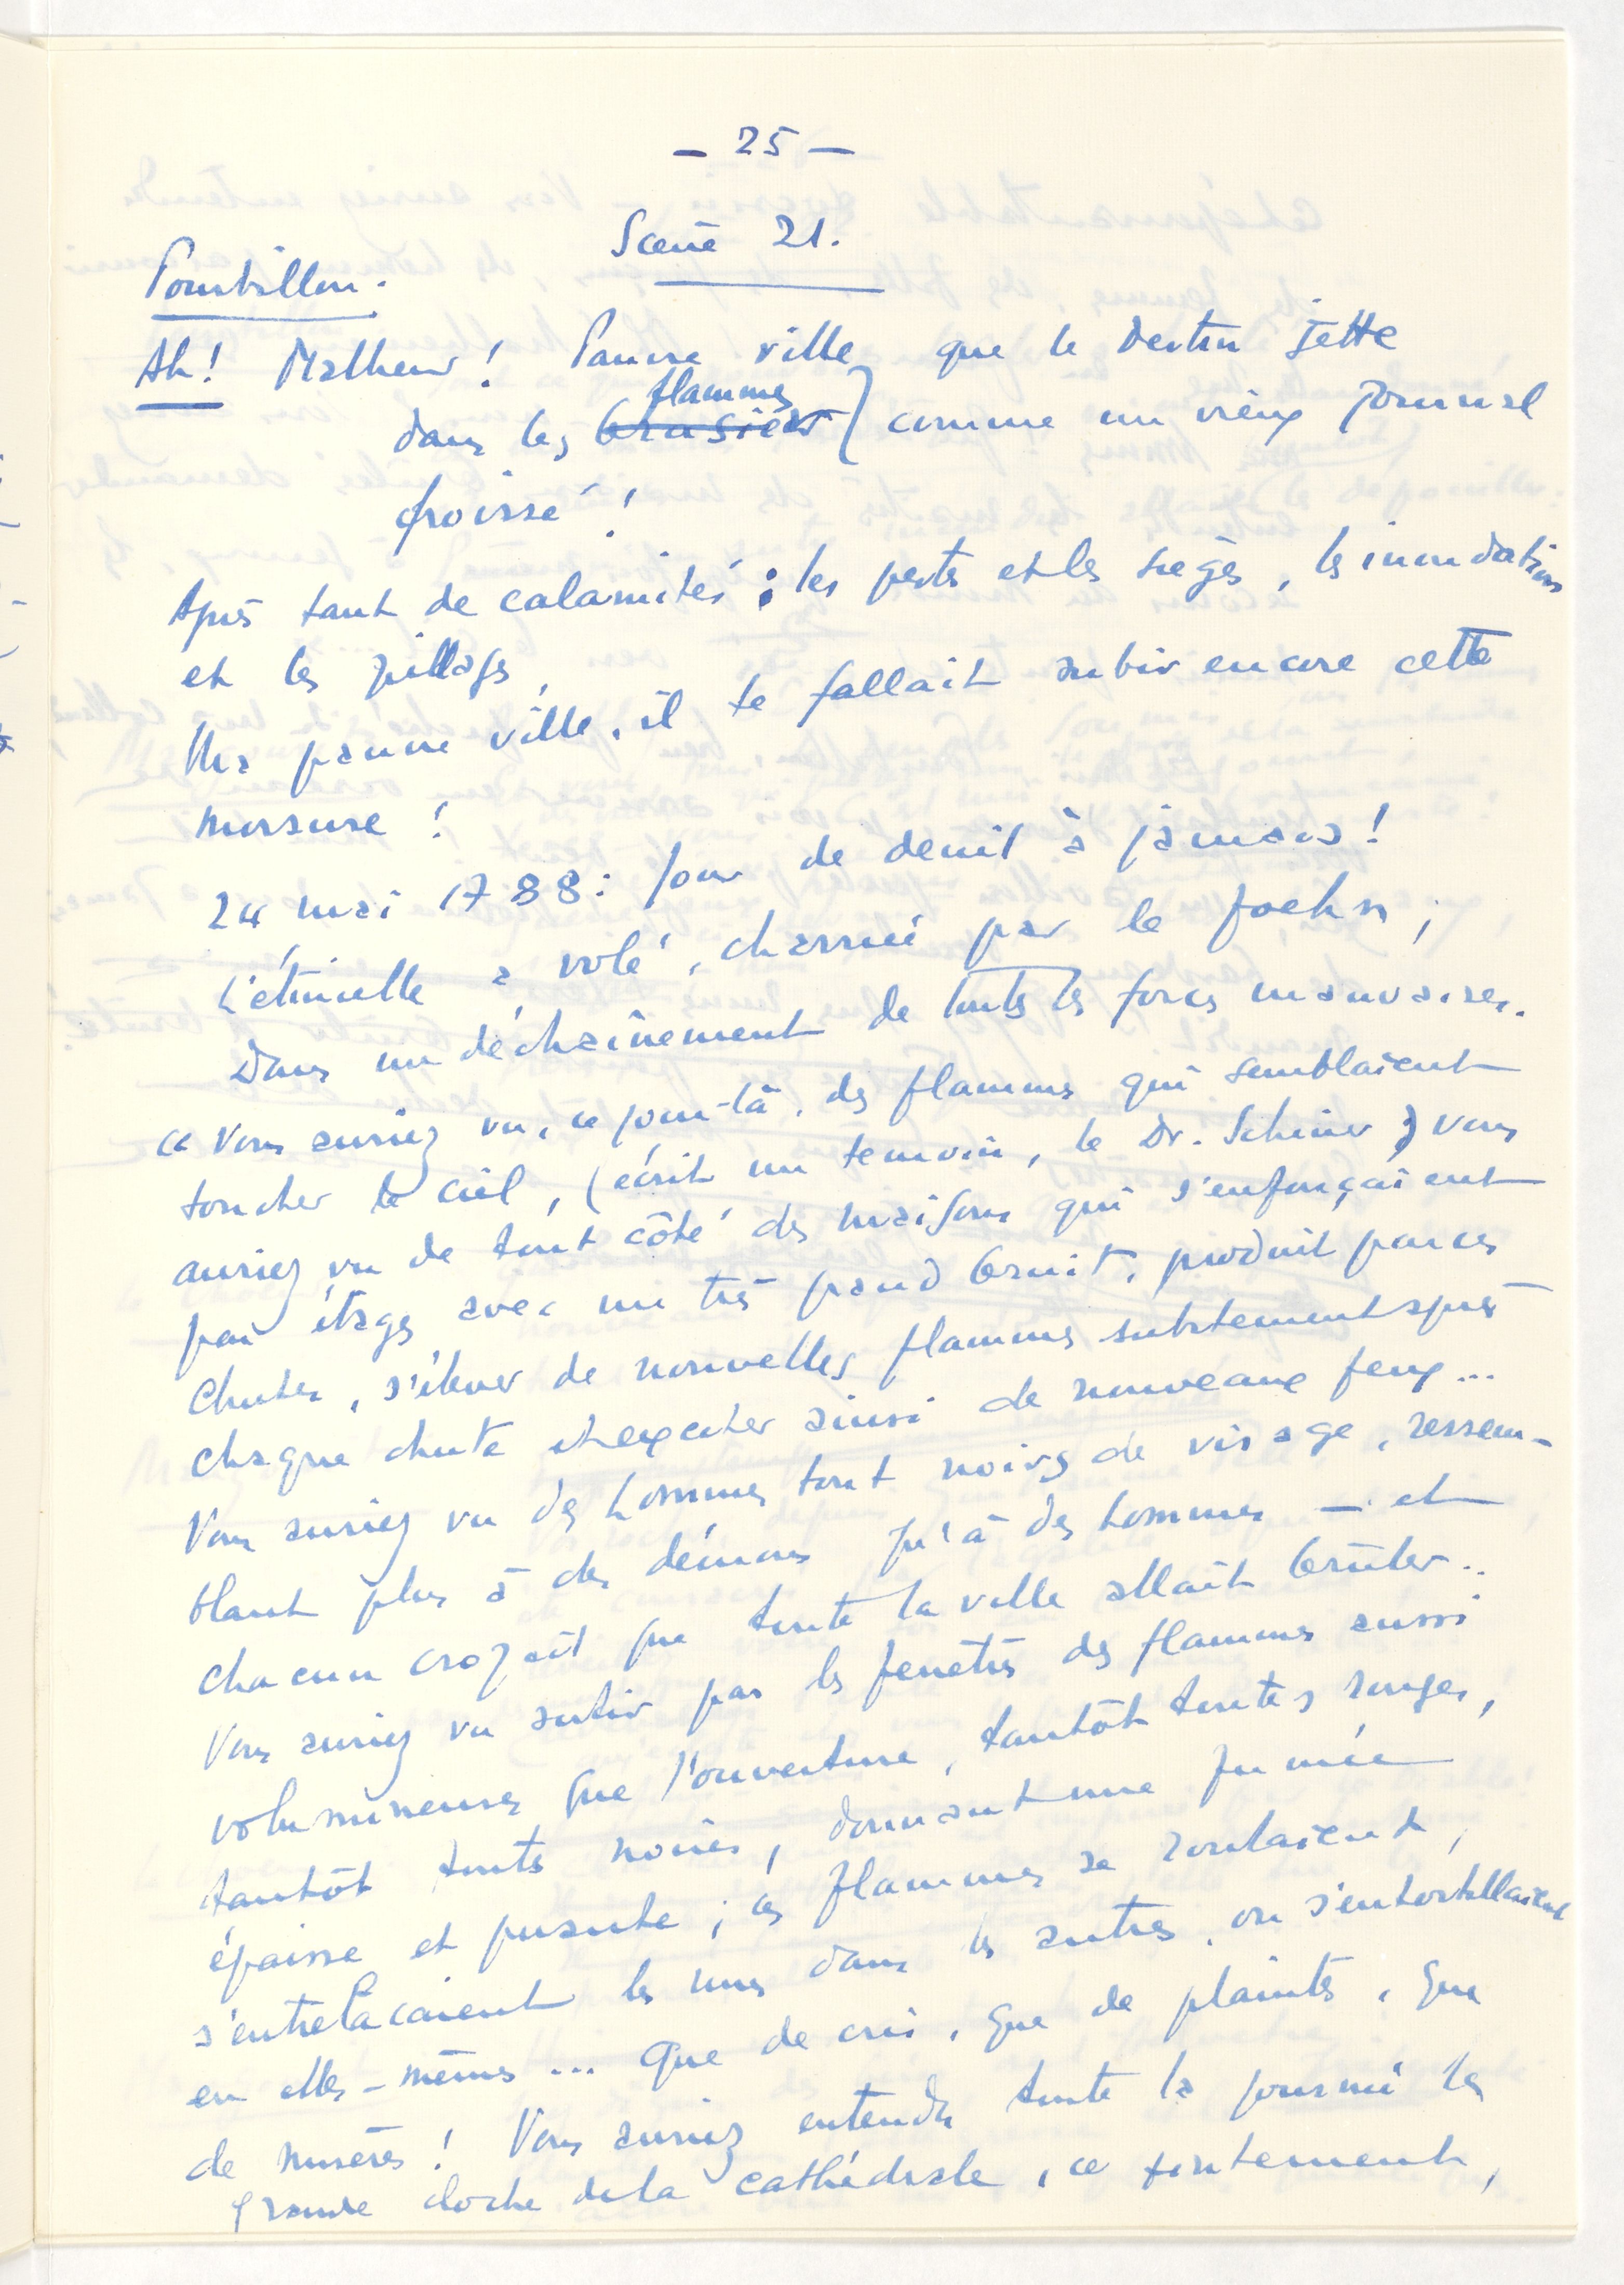 — 25 —
Scène 21.
Tourbillon.
Ah! Malheur! Pauvre ville que le Destin jette
flammes
dans les brasiers comme un vieux journal
froissé!
Après tant de calamités: les pestes et les sièges, les inondations
et les pillages,
Ma pauvre ville, il te fallait subir encore cette
morsure!
24 mai 1788: Jour de deuil à jamais!
L'étincelle a volé, charriée par le foehn;
Dans un déchaînement de toutes les forces mauvaises.
« Vous auriez vu, ce jour-là, des flammes qui semblaient
toucher le ciel, (écrit un témoin, le Dr. Schiner) vous
auriez vu de tout côté des maisons qui s'enfonçaient
par étages avec un très grand bruit, produit par ces
chutes, s'élever de nouvelles flammes subitement après
chaque chute et exciter ainsi de nouveaux feux...
Vous auriez vu des hommes tout noirs de visage, ressem-
blant plus à des démons qu'à des hommes — et
chacun croyait que toute la ville allait brûler..
Vous auriez vu sortir par les fenêtres des flammes aussi
volumineuses que l'ouverture, tantôt toutes rouges,
tantôt toutes noires, donnant une fumée
épaisse et puante; ces flammes se roulaient,
s'entrelacaient les unes dans les autres, ou s'entortillaient
en elles-mêmes... Que de cris, que de plaintes, que
de misères! Vous auriez entendu toute la journée la
grande cloche de la cathédrale, ce tintement,